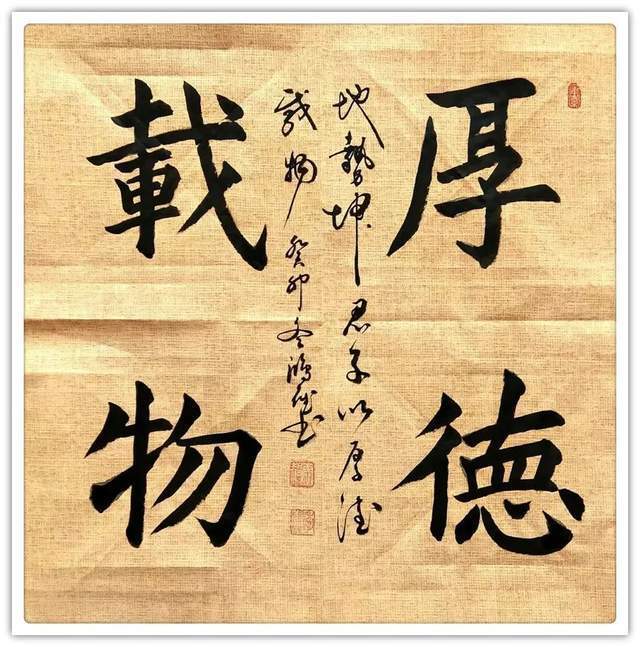 厚德
載物
地勢坤君子以厚德
載物 癸卯冬鴻書